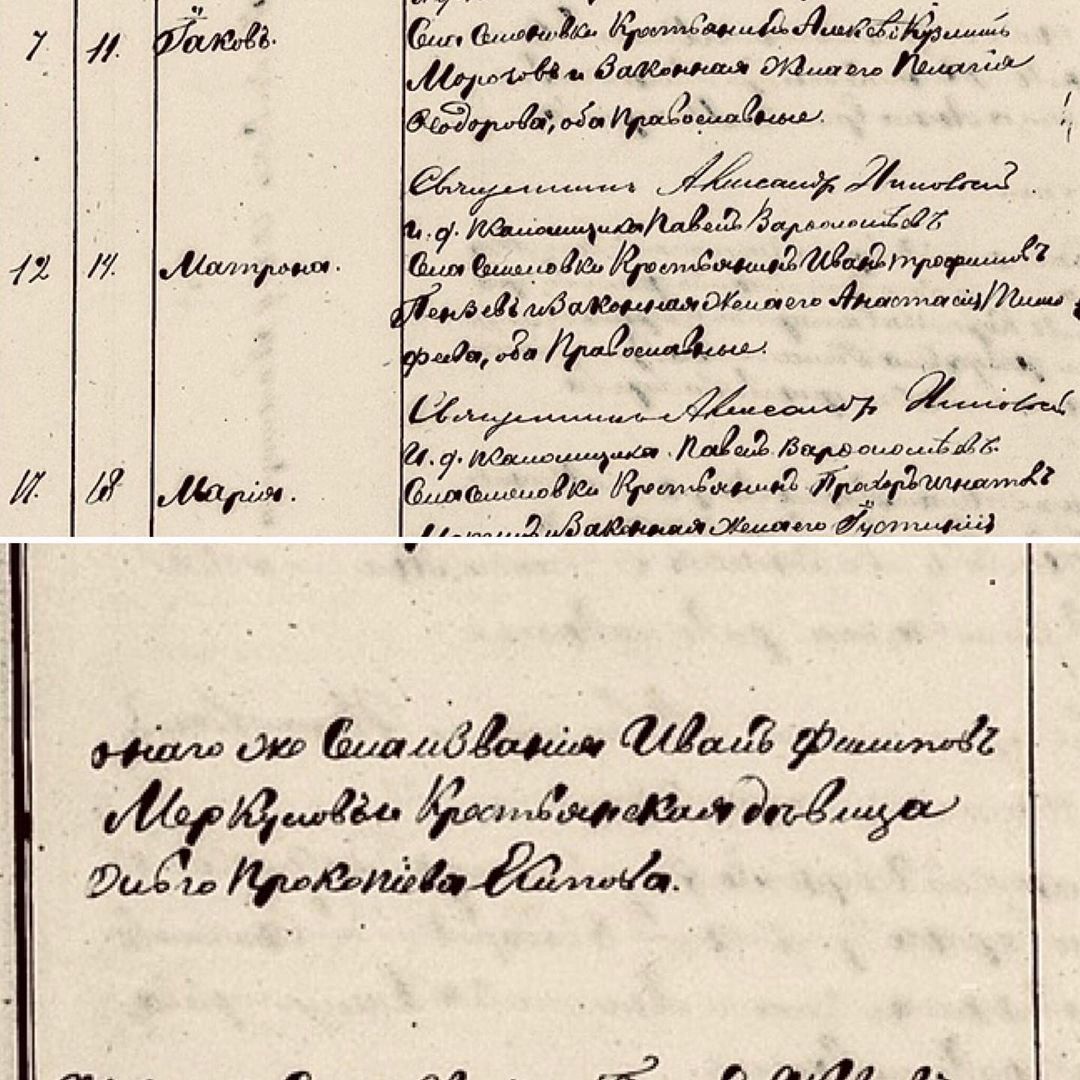 7 11. Іаковъ. Села Семеновки Крестьянинъ Алексѣй Кузминъ
Морозовъ и Законная Жена его Пелагія
Ѳеодорова, оба Православные.
Священникъ Александръ
и. д. Псаломщика Павелъ Варѳоломѣевъ
12 14. Матрона. Села Семеновки Крестьянинъ Иванъ Трофимовъ
и Законная Жена его Анастасія
оба Православные.
Священникъ Александръ
И. д. Псаломщика Павелъ Варѳоломѣевъ.
17. 18 Марія. Села Семеновки Крестьянинъ Прохоръ Игнатовъ
и Законная Жена его Іустинія
онаго же Села и Званія Иванъ Филиповъ
Меркуловъ и Крестьянская дѣвица
Прокопіева